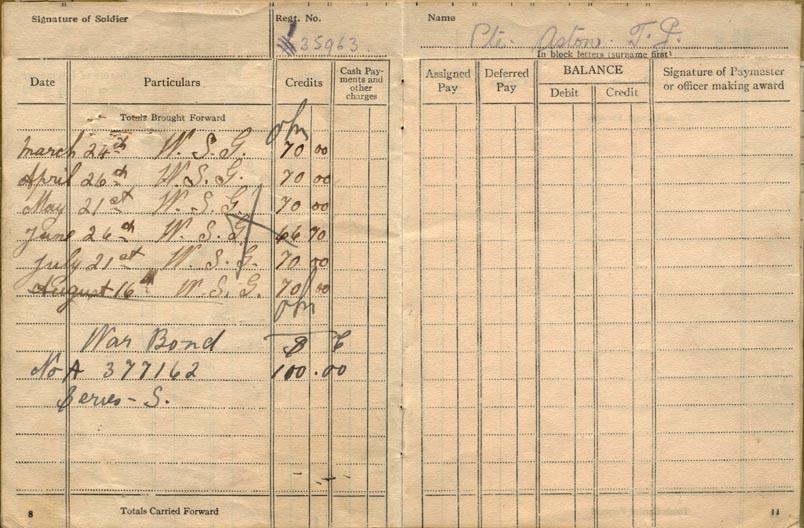 Signature of Soldier
Regt. No.
35963
Date Particulars Credits Cash Pay-ments and other charges
Totals Brought Forward
March 24th W. S. G. 70 00
April 26th W. S. G. 70 00
May 21st W. S. G. 70 00
June 26th W. S. G. 66 70
July 21st W. S. G. 70 00
August 16th W. S. G. 70 00
War Bond $ ¢
No A 377162 100.00
Series - S.
8 Totals Carried Forward
Name
Pte. Aston. T. G.
In block letters (surname first)
Assigned Pay Deferred Pay BALANCE Debit Credit Signature of Paymaster or officer making award